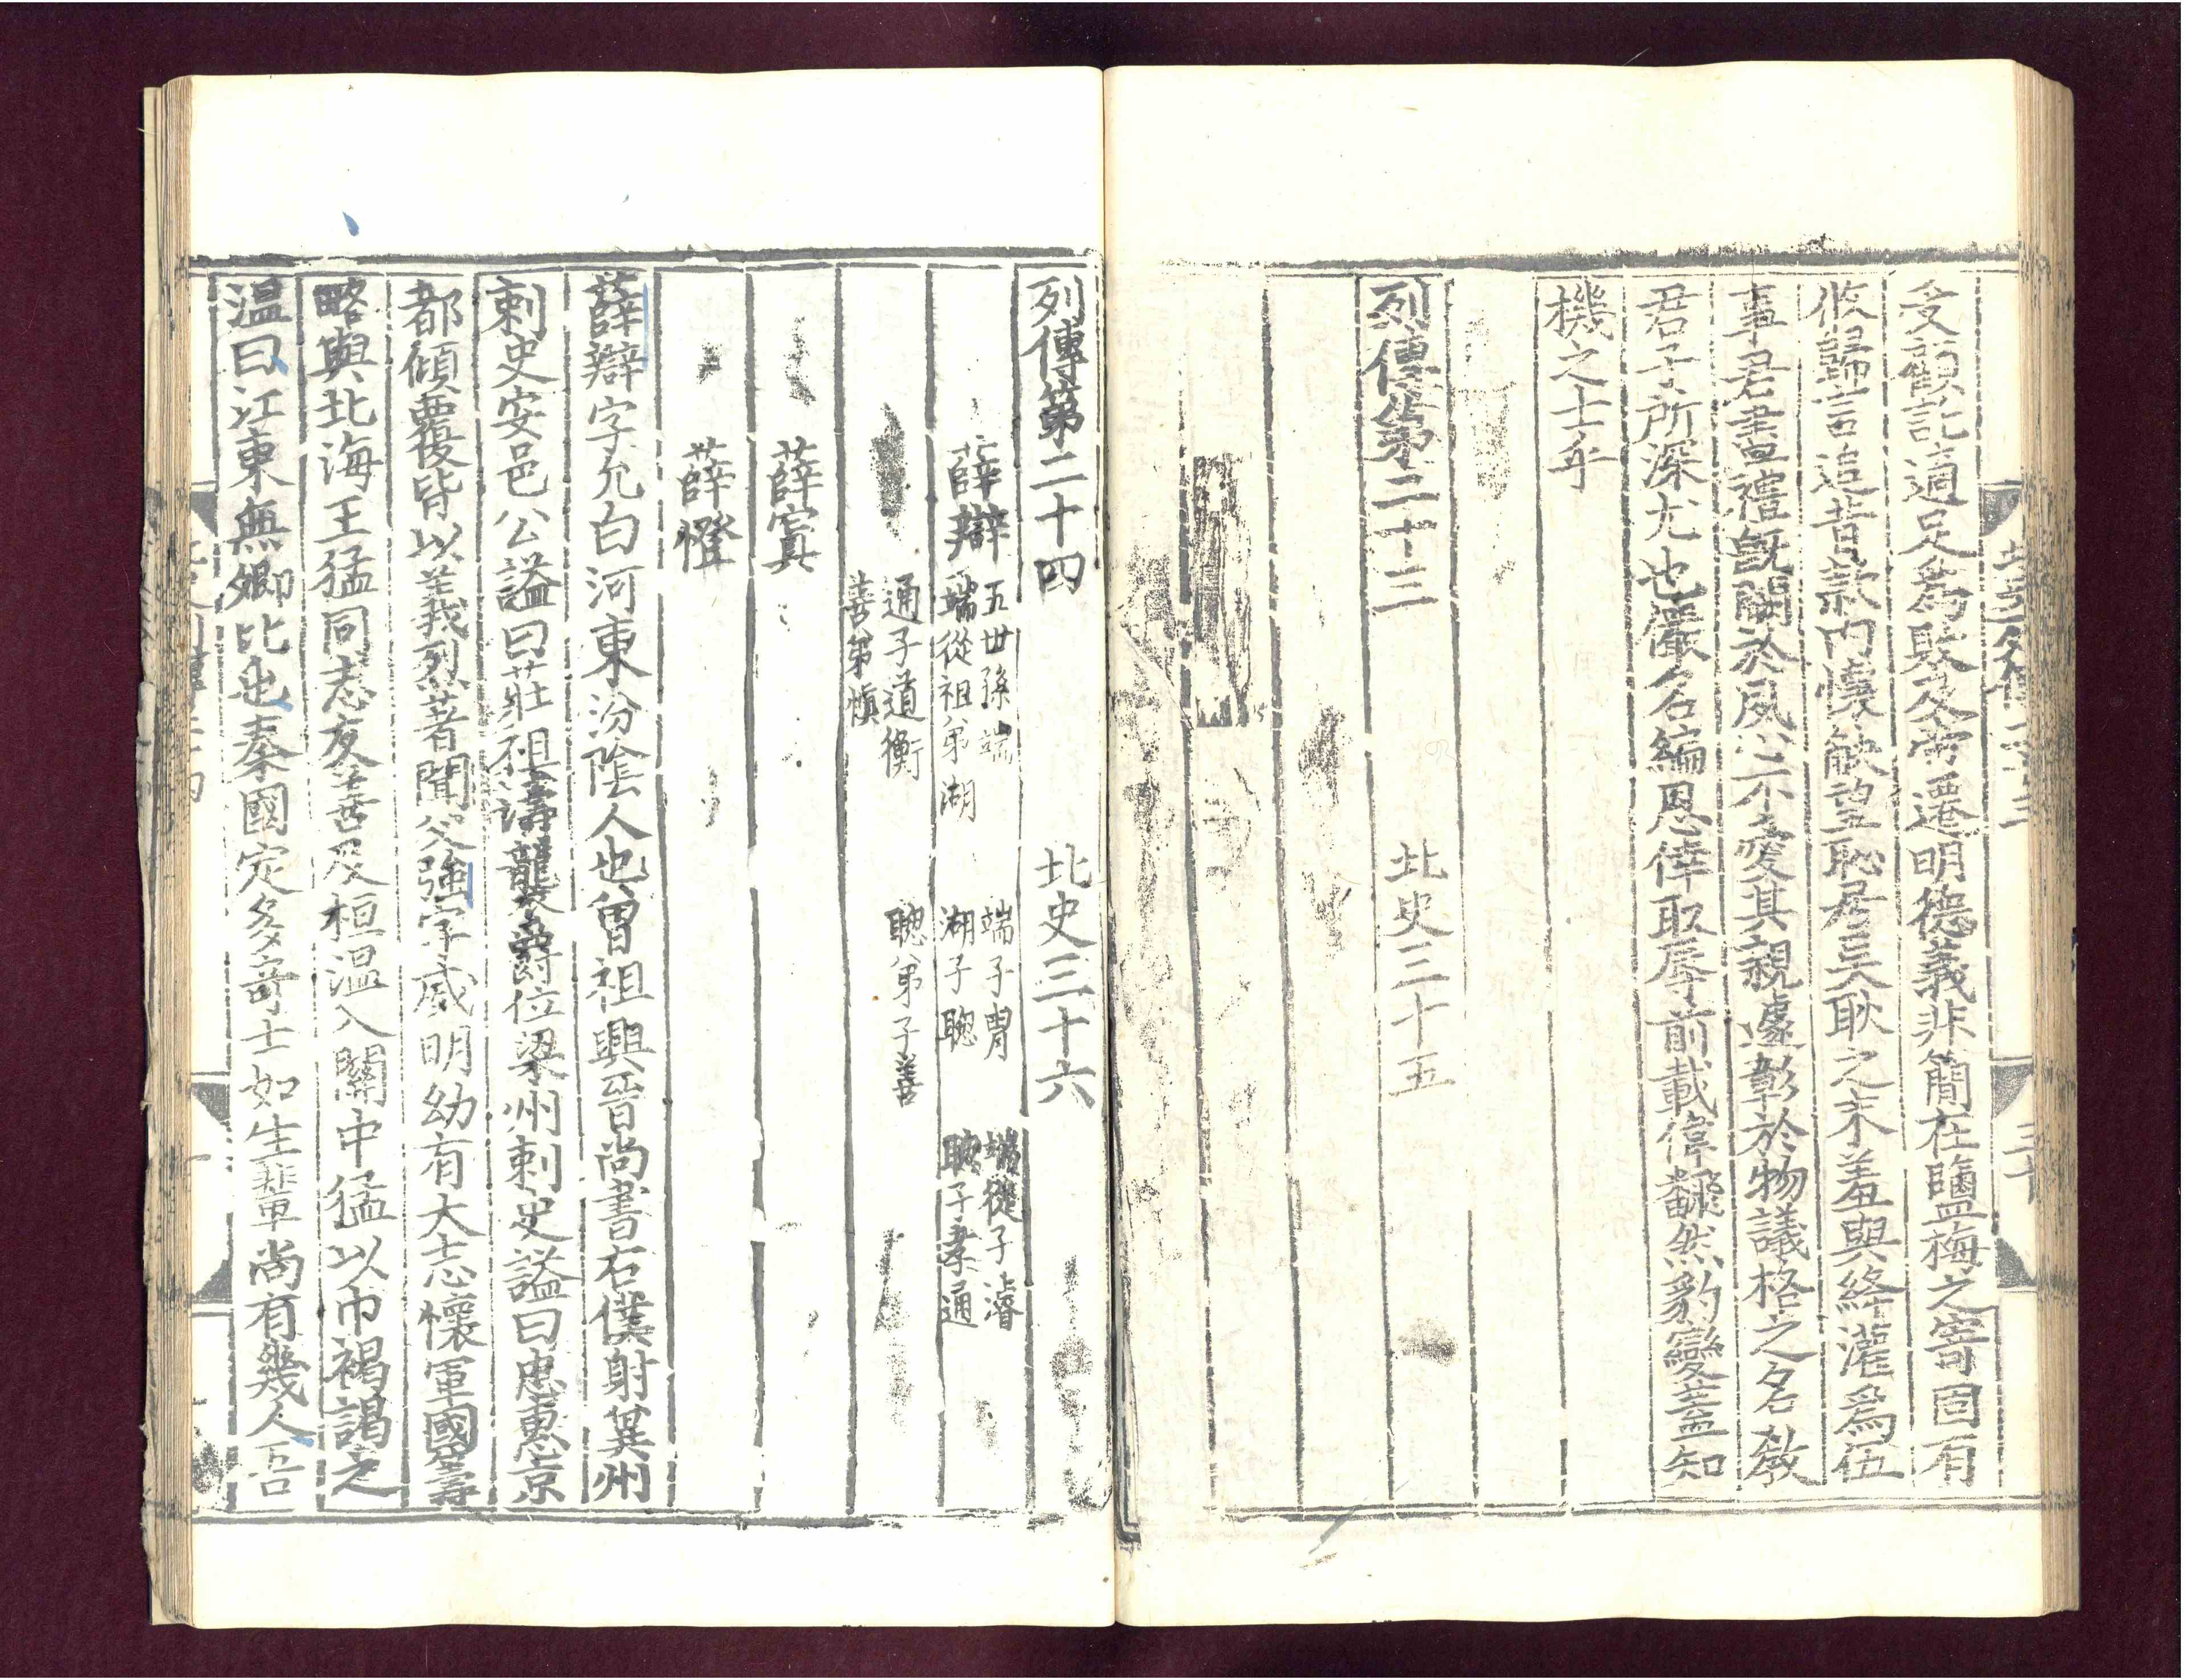 受顧託適足爲敗及帝遷明德義非簡在鹽梅之寄固有
攸歸言追昔款內懷觖望恥居吳耿之末羞與絳灌爲伍
事君盡禮旣闕於夙心不愛其親遽彰於物議格之名敎
君子所深尤也儼名編恩倖取辱前載偉飜然豹變蓋知
機之士乎
列傳第二十三 北史三十五
列傳第二十四 北史三十六
薛辯 五世孫端 端子冑 端從子濬
端從祖弟湖 湖子聦 聦子孝通
通子道衡 聦弟子善
善弟愼
薛寘
薛憕
薛辯字允白河東汾陰人也曾祖興晉尚書右僕射兾州
剌史安邑公謚曰莊祖濤襲爵位梁州剌史謚曰忠惠京
都傾覆皆以義烈著聞父強字威明幼有大志懷軍國籌
略與北海王猛同志友善及桓溫入關中猛以巾褐謁之
溫曰江東無卿比也秦國定多奇士如生輩尚有幾人吾